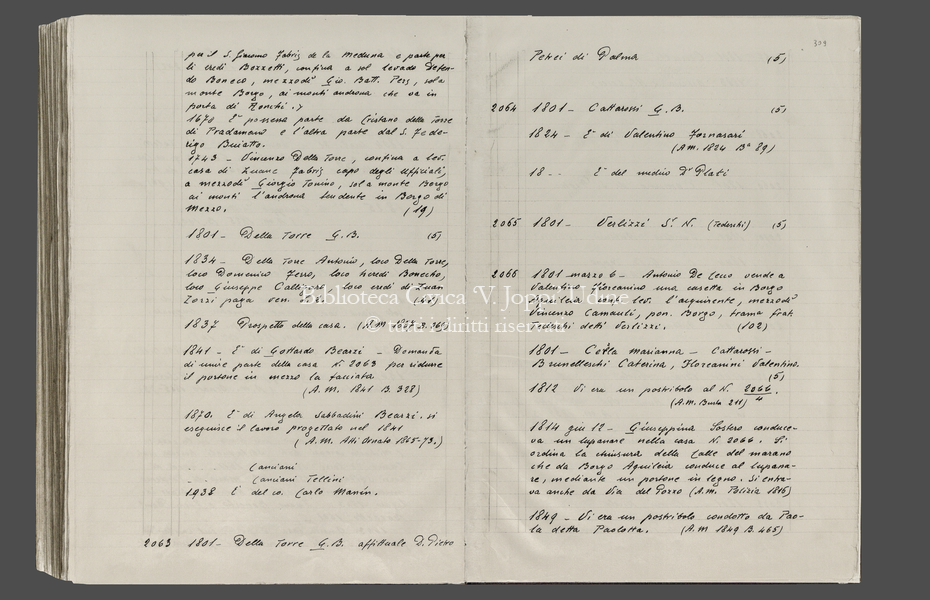 per il S. Giacomo Fabriz de la Meduna e parte per
li eredi Bozzetti, confina a sol levado Defen-
do Boneco, mezzodì Gio. Batt. Pers, sol a
monte Borgo, ai monti androna che va in
porta di Ronchi.
1670 È possessa parte da Cristano della Torre
di Pradamano e l'altra parte dal S. Fede-
rigo Buiatto.
1743 - Vincenzo Della Torre, confina a lev.
casa di Zuane Fabriz capo degli Ufficiali,
a mezzodì Giorgio Tonino, sol a monte Borgo
ai monti l'androna tendente in Borgo di
Mezzo. (19)
1801 - Della Torre G.B. (5)
1834 - Della Torre Antonio, loco Della Torre,
loco Domenico Ferro, loco heredi Bonecho,
loco Giuseppe loco eredi di Zuan
Zorzi paga ven.
1837 Prospetto della casa. (A.M. 1837 B.
1841 - È di Gottardo Bearzi - Domanda
di unire parte della casa N. 2063 per ridurre
il portone in mezzo la facciata.
(A.M. 1841 B. 328)
1870. È di Angela Sabbadini Bearzi. Si
eseguisce il lavoro progettato nel 1841
(A.M. Atti Ornato 1865-73.)
Canciani
Canciani Tellini
1938 È del co. Carlo Manin.
2063 1801 - Della Torre G.B. affittuale D. Pietro
309
Petrei di Palma (5)
2064 1801 - Cattarossi G.B. (5)
1824 - È di Valentino Fornasari
(A.M. 1824 Bª 89)
18.. È del medico Dr Plati
2065 1801 - Verlizzi S. N. (Tedeschi) (5)
2066 1801 marzo 6 - Antonio De Cecco vende a
Valentino Floreanino una casetta in Borgo
Aquileia conf. lev. l'acquirente, mezzodì
Vincenzo Camauli, pon. Borgo, tramª frat.
Tedeschi detti Verlizzi. (102)
1801 - Marianna - Cattarossi -
Brunelleschi Caterina, Floreanini Valentino.
(5)
1812 Vi era un postribolo al N. 2066/4.
(A.M. Busta 211)
1814 giu 12 - Giuseppina Sostero conduce-
va un lupanare nella casa N. 2066. Si
ordina la chiusura della Calle del marano
che da Borgo Aquileia conduce al lupana-
re, mediante un portone in legno. Si entra-
va anche da Via del Pozzo (A.M. Polizia 1816)
1849 - Vi era un postribolo condotto da Pao-
la detta Paolotta. (A.M. 1849 B. 465)
Biblioteca Civica 'V. Joppi' Udine
© tutti i diritti riservati